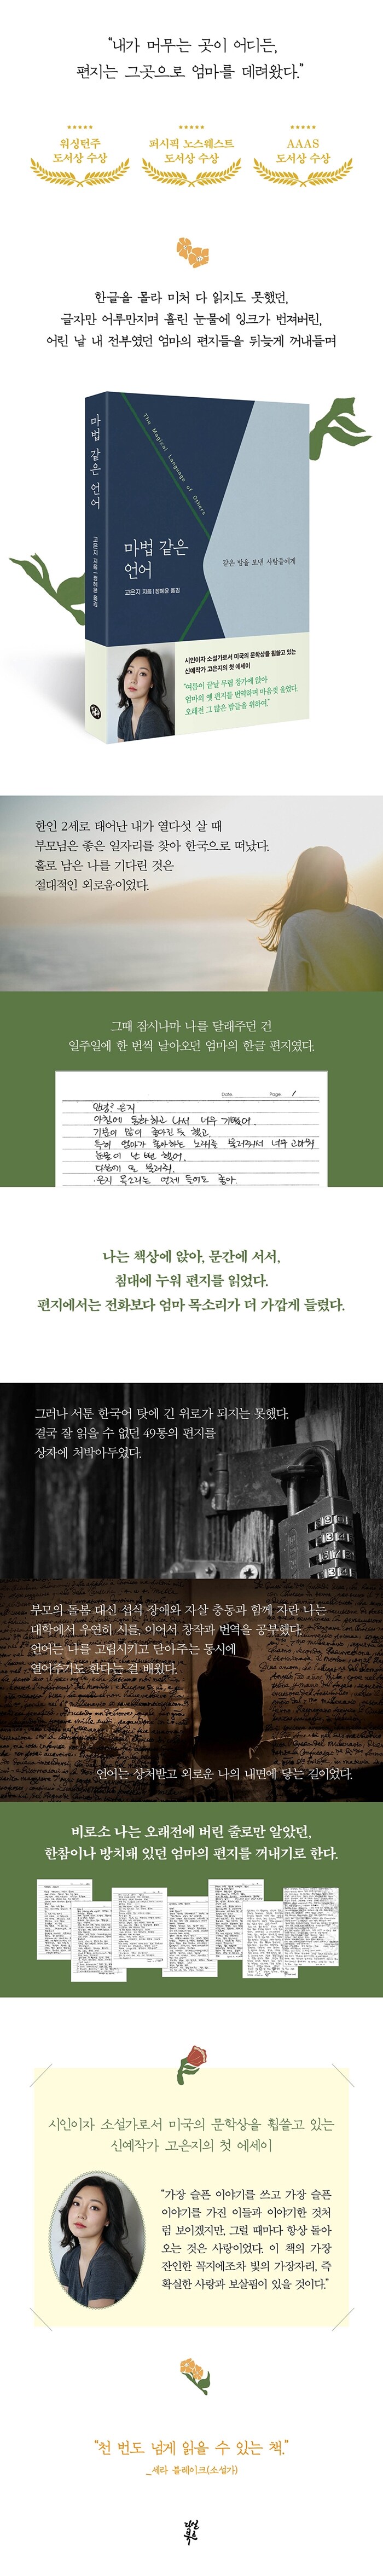 "내가 머무는 곳이 어디든,
편지는 그곳으로 엄마를 데려왔다."
워싱턴주
도서상 수상
퍼시픽 노스웨스트
도서상 수상
AAAS
도서상 수상
한글을 몰라 미처 다 읽지도 못했던,
글자만 어루만지며 흘린 눈물에 잉크가 번져버린,
어린 날 내 전부였던 엄마의 편지들을 뒤늦게 꺼내들며
마법 같은 언어
고은지 지음 | 정혜윤 옮김
The Magical Language of Others
마법 같은
언어
고은지 지음 | 정혜윤 옮김
같은 밤을 보낸 사람들에게
시인이자 소설가로서 미국의 문학상을 휩쓸고 있는
신예작가 고은지의 첫 에세이
"여름이 끝날 무렵 창가에 앉아
엄마의 옛 편지를 번역하며 마음껏 울었다.
오래전 그 많은 밤들을 위하여."
한인 2세로 태어난 내가 열다섯 살 때
부모님은 좋은 일자리를 찾아 한국으로 떠났다.
홀로 남은 나를 기다린 것은
절대적인 외로움이었다.
그때 잠시나마 나를 달래주던 건
일주일에 한 번씩 날아오던 엄마의 한글 편지였다.
Date. Page. 1
안녕? 은지
아침에 통화하고 나서 너무 기뻤어.
기분이 많이 좋아진 듯 했고
특히 엄마가 좋아하는 노래를 불러줘서 너무 고마워
눈물이 난 뻔 했어.
다음에 또 불러줘.
은지 목소리는 언제 들어도 좋아.
나는 책상에 앉아, 문간에 서서,
침대에 누워 편지를 읽었다.
편지에서는 전화보다 엄마 목소리가 더 가깝게 들렸다.
그러나 서툰 한국어 탓에 긴 위로가 되지는 못했다.
결국 잘 읽을 수 없던 49통의 편지를
상자에 처박아두었다.
부모의 돌봄 대신 섭식 장애와 자살 충동과 함께 자란 나는
대학에서 우연히 시를, 이어서 창작과 번역을 공부했다.
언어는 나를 고립시키고 닫아주는 동시에
열어주기도 한다는 걸 배웠다.
언어는 상처받고 외로운 나의 내면에 닿는 길이었다.
비로소 나는 오래전에 버린 줄로만 알았던,
한참이나 방치돼 있던 엄마의 편지를 꺼내기로 한다.
시인이자 소설가로서 미국의 문학상을 휩쓸고 있는
신예작가 고은지의 첫 에세이
"가장 슬픈 이야기를 쓰고 가장 슬픈
이야기를 가진 이들과 이야기한 것처
럼 보이겠지만, 그럴 때마다 항상 돌아
오는 것은 사랑이었다. 이 책의 가장
잔인한 꼭지에조차 빛의 가장자리, 즉
확실한 사랑과 보살핌이 있을 것이다."
"천 번도 넘게 읽을 수 있는 책."
_세라 블레이크(소설가)